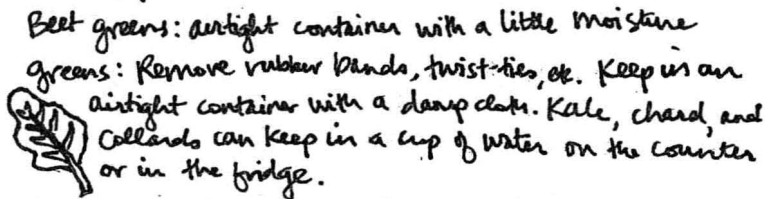 Beet greens: airtight container with a little moisture
greens: Remove rubber bands, twist-ties, etc. Keep in an
airtight container with a damp cloth. Kale, chard, and
Collards can keep in a cup of water on the counter
or in the fridge.